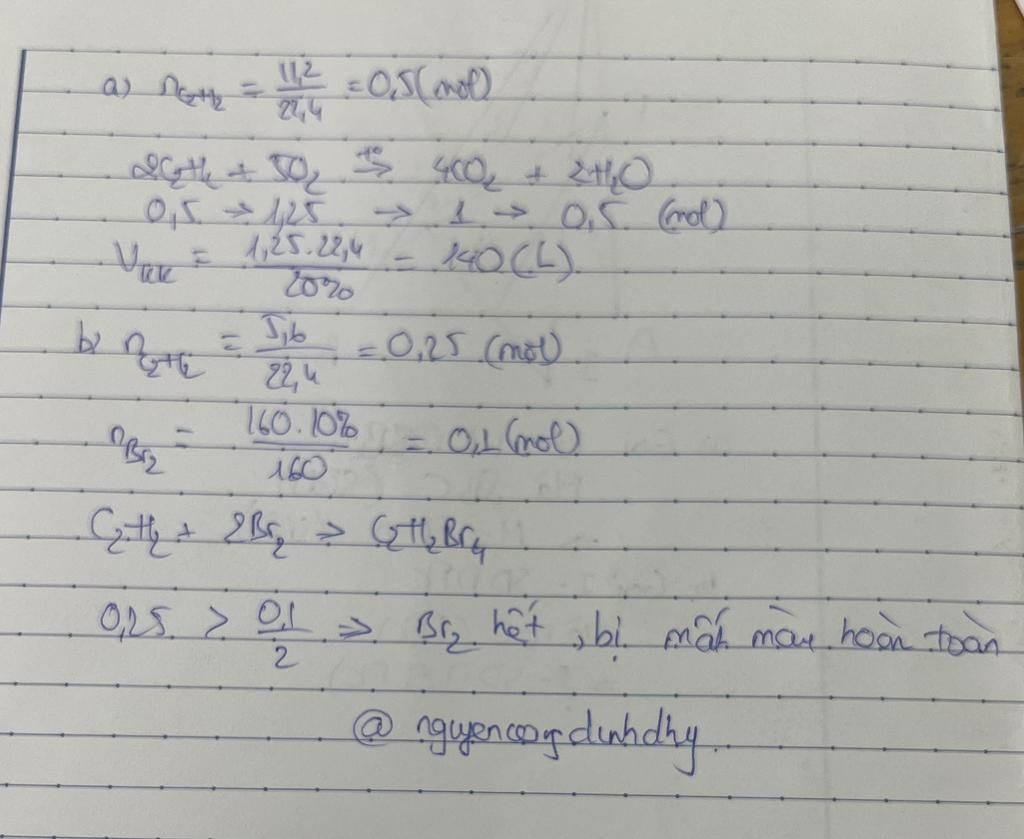 a) nC2H2 = 11,2/22,4 = 0,5 (mol)
2C2H2 + 5O2 t°→ 4CO2 + 2H2O
0,5 → 1,25 → 1 → 0,5 (mol)
Vkk = 1,25.22,4/20% = 140 (L)
b) nC2H2 = 5,6/22,4 = 0,25 (mol)
nBr2 = 160.10%/160 = 0,1 (mol)
C2H2 + 2Br2 → C2H2Br4
0,25 > 0,1/2 ⇒ Br2 hết, bị mất màu hoàn toàn
@ nguyencongdinhdhy